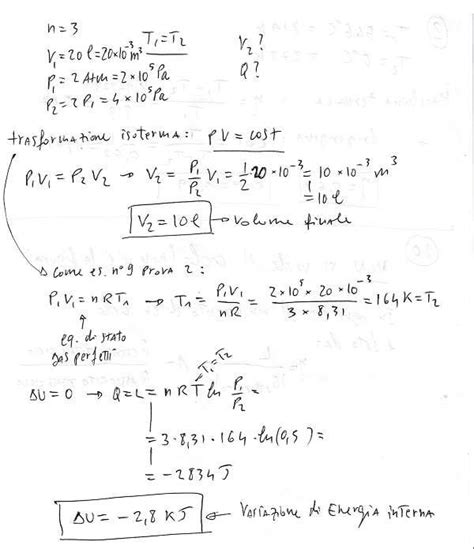 n=3
T₁=T₂
V₁=20 l=20×10⁻³ m³
V₂?
P₁=2 Atm=2×10⁵ Pa
Q?
P₂=2P₁=4×10⁵ Pa
trasformazione isoterma: PV=cost
P₁V₁=P₂V₂ → V₂=P₁/P₂ V₁=1/2·20×10⁻³=10×10⁻³ m³
=10 l
V₂=10 l → volume finale
Come es. n°9 Prova 2:
P₁V₁=nRT₁ → T₁=P₁V₁/nR=2×10⁵×20×10⁻³/3×8,31=164K=T₂
eq. di stato
gas perfetti
T₁=T₂
ΔU=0 → Q=L=nRT ln P₁/P₂=
=3·8,31·164·ln(0,5)=
=-2834 J
ΔU=-2,8 KJ ← Variazione di Energia interna